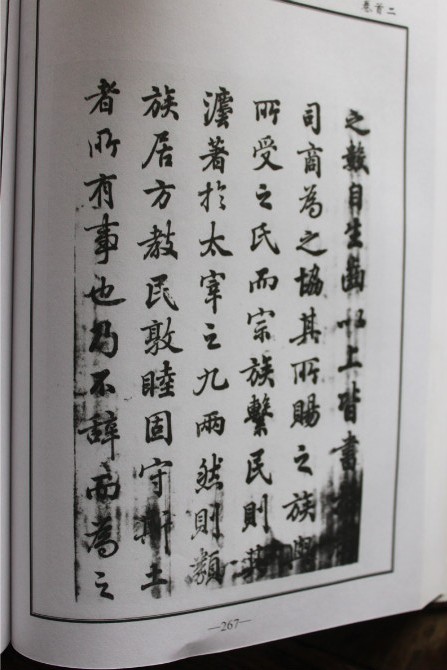 卷首二
之數自生齒以上皆書
司商為之協其所賜之族與
所受之氏而宗族繫民則其
瀍著於太宰之九兩然則類
族居方敎民敦睦固守斯土
者所有事也乃不辭而為之
—267—